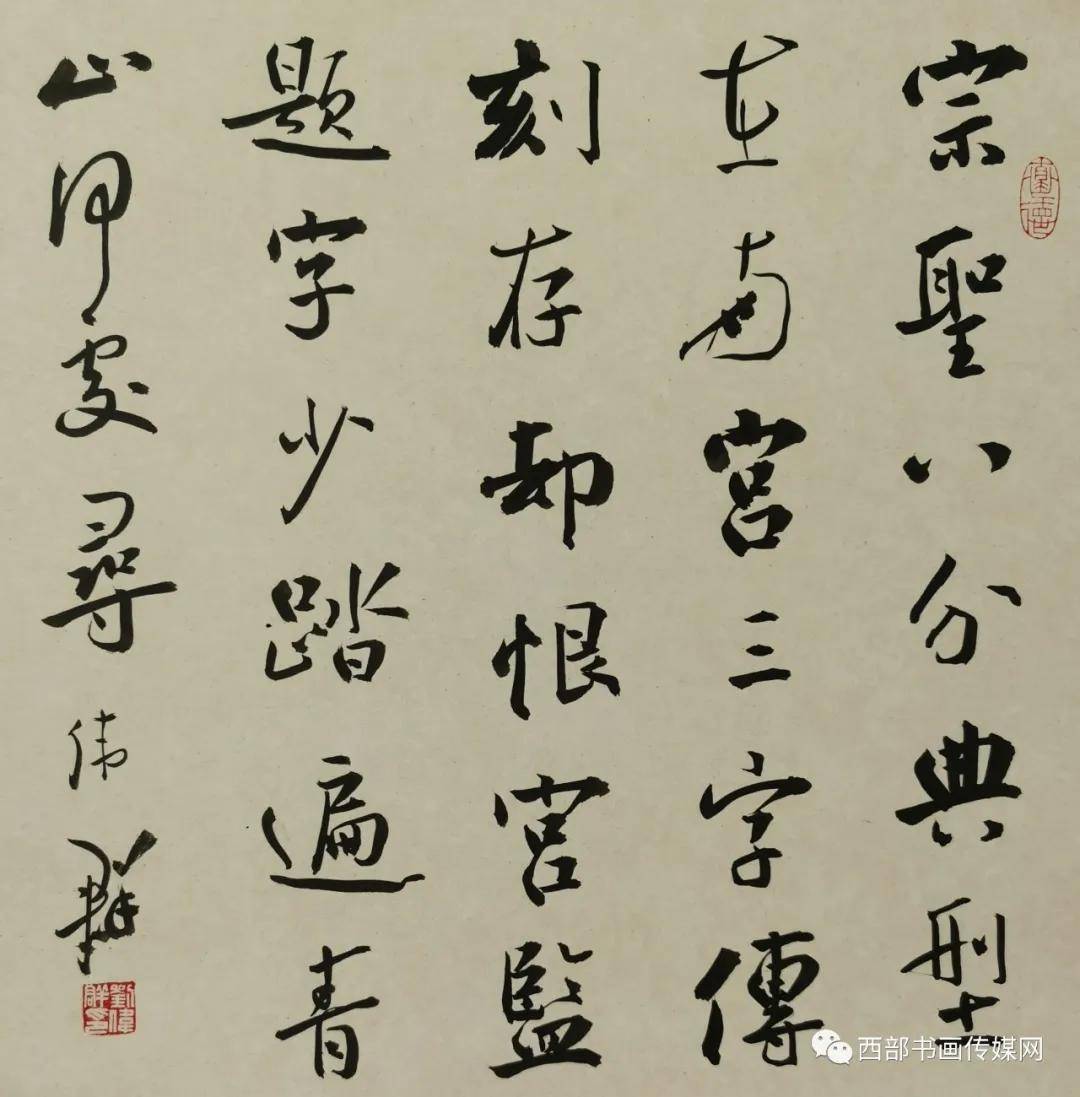 宗聖八分典型
在南宮三字傳
刻存却恨宮監
題字少踏遍青
山何處尋 偉群
劉偉群印
西部书画传媒网